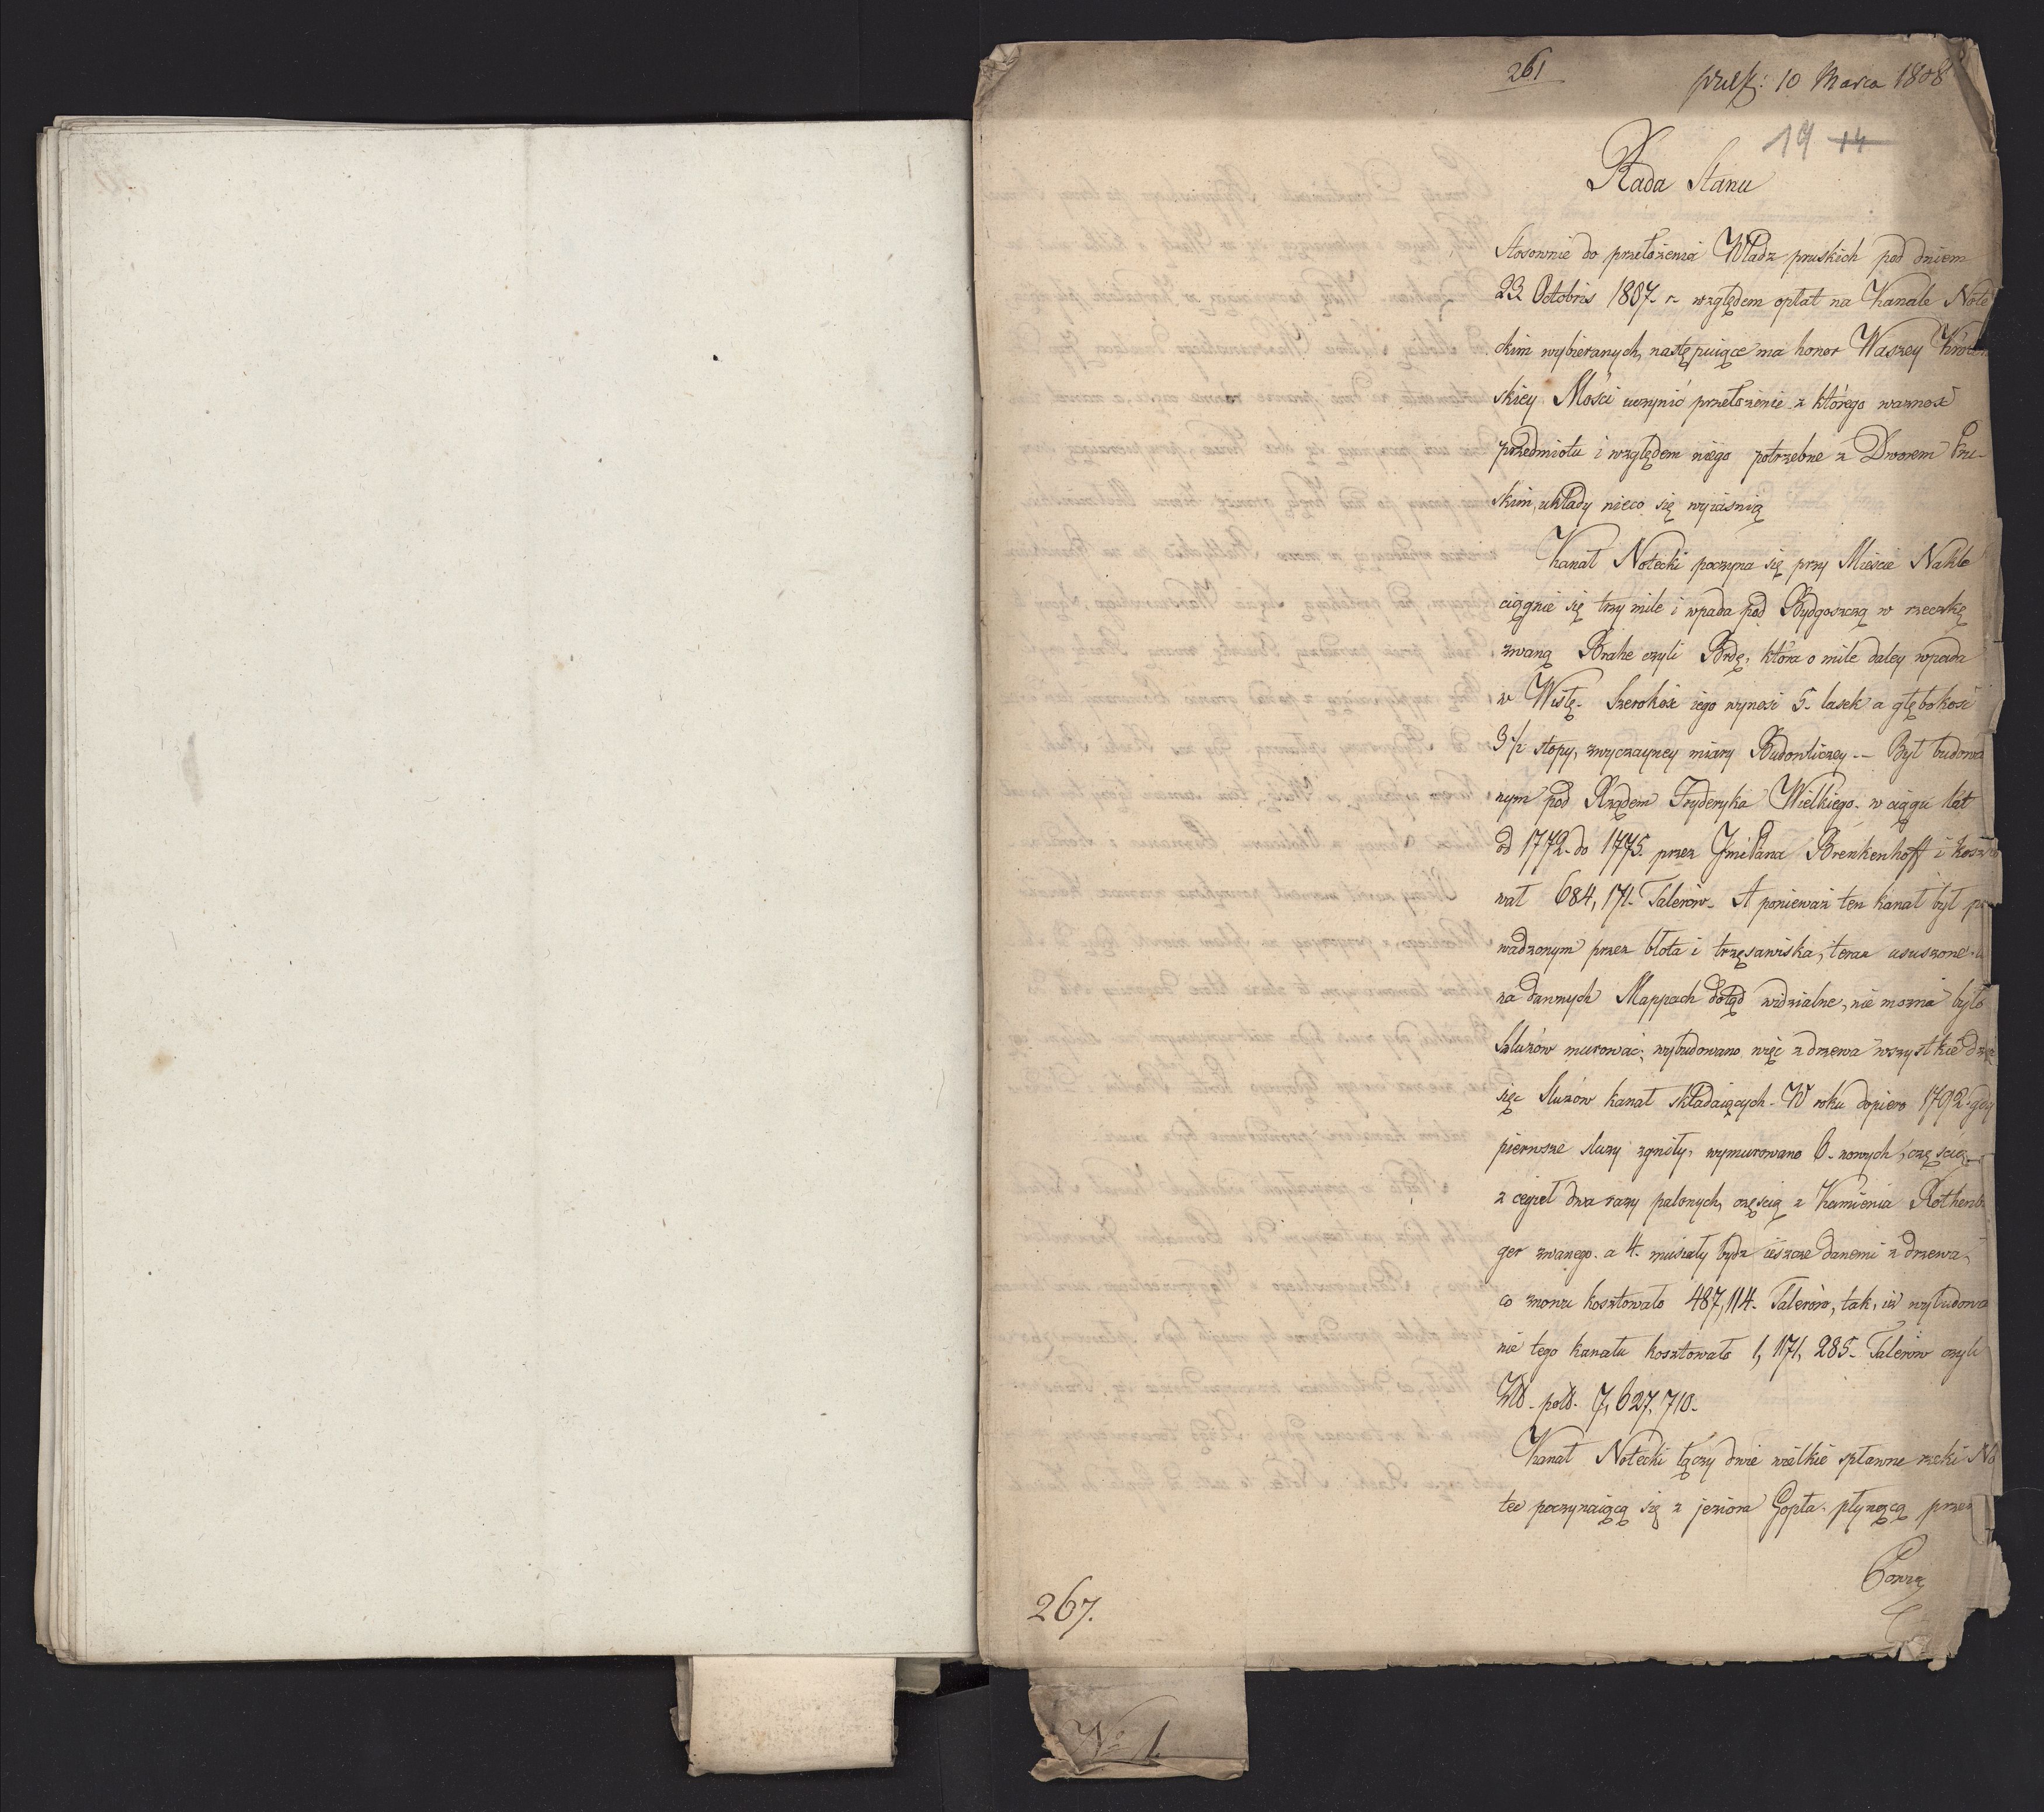 261
præs: 10 Marca 1808
19 14
Rada Stanu
Stosownie do przełożenia Władz pruskich pod dniem
23 Octobris 1807. r. względem opłat na Kanale Note
ckim wybieranych, następuiące ma honor Waszey Królew
skiey Mości uczynić przełożenie z którego ważność
przedmiotu i względem niego potrzebne z Dworem Pru-
skim, układy nieco się wyiaśnią
Kanał Notecki poczyna się przy Mieście Nakle
ciągnie się trzy mile i wpada pod Bydgoszczą w rzeczkę
zwaną Brahe czyli Brdę, która o mile daley wpada
w Wisłę. Szerokość iego wynosi 5. lasek a głębokość
3 1/2 stopy, zwyczayney miary Budowliczey -- Był budowa
nym pod Rządem Fryderyka Wielkiego. w ciągu lat
od 1772. do 1775. przez JmiPana Brenkenhoff i koszto
wał 684,171. Talerów. A ponieważ ten kanał był pro
wadzonym przez błota i trzęsawiska, teraz ususzone
na dawnych Mappach dotąd widzialne, nie można było
Szluzów murować; wybudowano więc z drzewa wszystkie dzie
sięć Sluzów kanał składaiących. W roku dopiero 1792. gdy
pierwsze sluzy zgniły, wymurowano 6. nowych, częścią
z cegieł dwa razy palonych, częścią z Kamienia Rothenbur
ger zwanego. a 4. musiały bydz ieszcze danemi z drzewa,
co znowu kosztowało 487,114. Talerów, tak, iż wybudowa
nie tego kanału kosztowało 1,171,285. Talerów czyli
Złł. polł. 7,627,710.
Kanał Notecki łączy dwie wielkie spławne rzeki No
teć poczynaiącą się z jeziora Gopła. płynącą przez
267.
No 1.